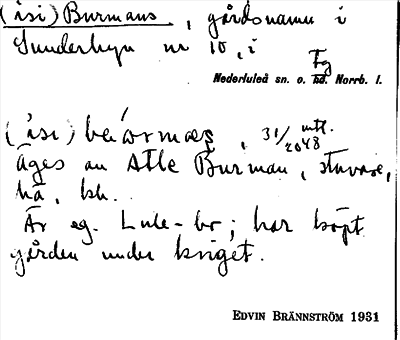 (isi) Burmans, gårdsnamn i
Sunderbyn nr 10, i
Fg
Nederluleå sn. o. hd. Norrb. l.
(isi) 31/2048 mtl.
Äges av Atle Burman, stuvare,
hä, bh.
Är eg. Lule-bo; har köpt
gården under kriget.
EDVIN BRÄNNSTRÖM 1931